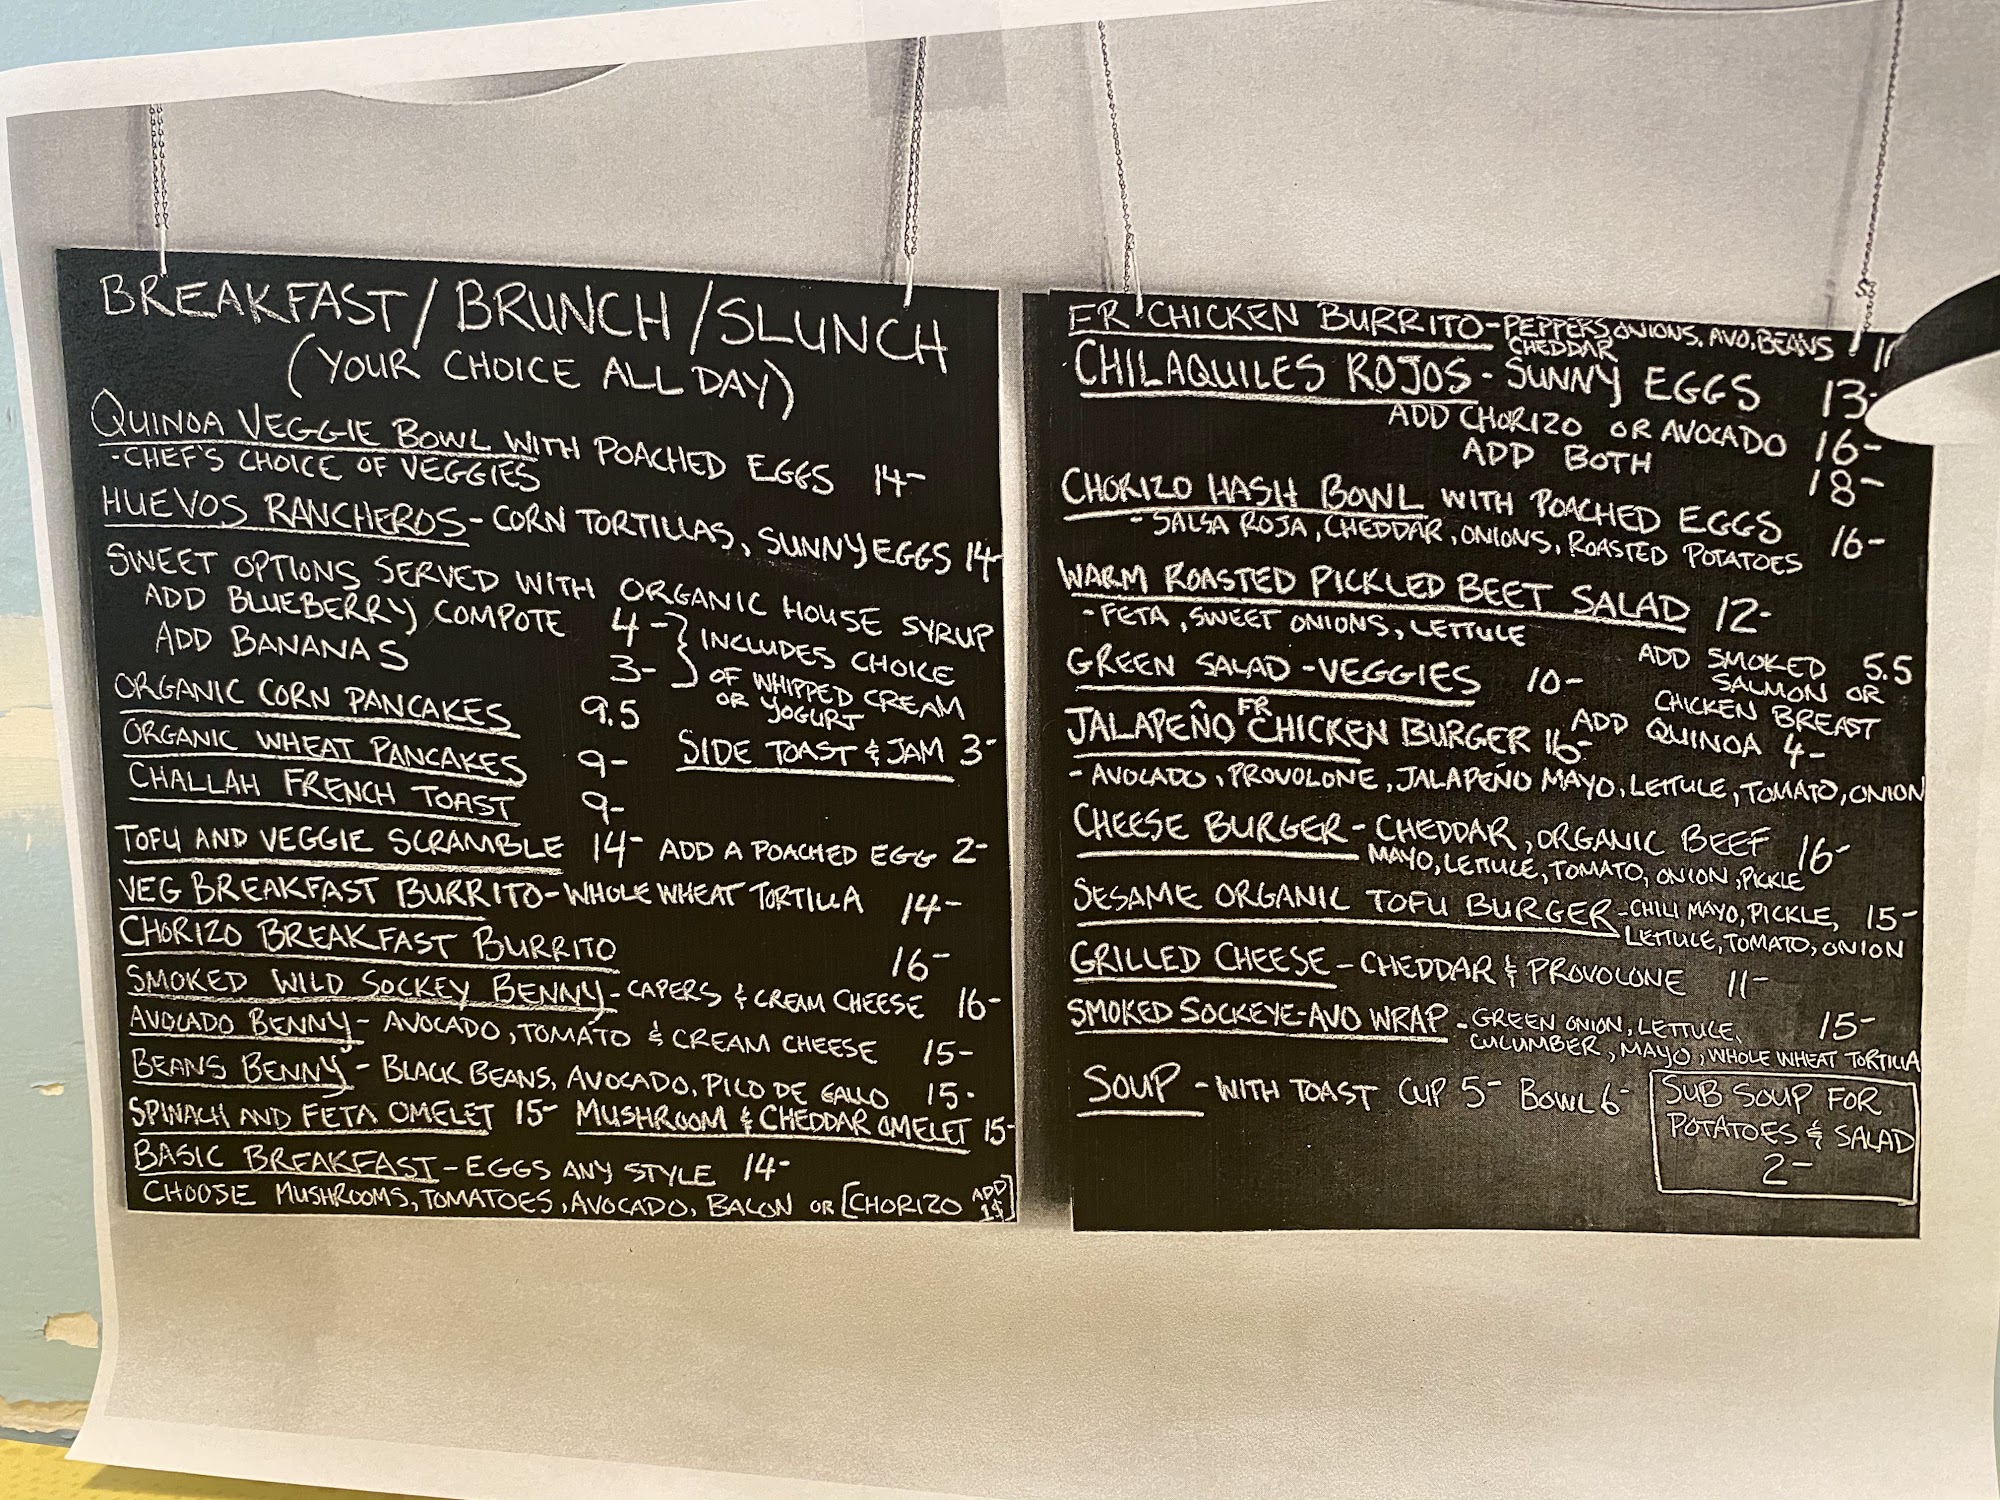 BREAKFAST/BRUNCH/SLUNCH
(YOUR CHOICE ALL DAY)
QUINOA VEGGIE BOWL WITH POACHED EGGS 14-
-CHEF'S CHOICE OF VEGGIES
HUEVOS RANCHEROS-CORN TORTILLAS, SUNNY EGGS 14-
SWEET OPTIONS SERVED WITH ORGANIC HOUSE SYRUP
ADD BLUEBERRY COMPOTE 4-
ADD BANANAS 3-
INCLUDES CHOICE
OF WHIPPED CREAM
OR YOGURT
ORGANIC CORN PANCAKES 9.5
ORGANIC WHEAT PANCAKES 9-
SIDE TOAST & JAM 3-
CHALLAH FRENCH TOAST 9-
TOFU AND VEGGIE SCRAMBLE 14- ADD A POACHED EGG 2-
VEG BREAKFAST BURRITO-WHOLE WHEAT TORTILLA 14-
CHORIZO BREAKFAST BURRITO 16-
SMOKED WILD SOCKEY BENNY-CAPERS & CREAM CHEESE 16-
AVOCADO BENNY- AVOCADO, TOMATO & CREAM CHEESE 15-
BEANS BENNY- BLACK BEANS, AVOCADO, PICO DE GALLO 15-
SPINACH AND FETA OMELET 15- MUSHROOM & CHEDDAR OMELET 15-
BASIC BREAKFAST-EGGS ANY STYLE 14-
CHOOSE MUSHROOMS, TOMATOES, AVOCADO, BACON OR [CHORIZO ADD 1$]
FR CHICKEN BURRITO-PEPPERS, ONIONS, AVO, BEANS
CHEDDAR
CHILAQUILES ROJOS- SUNNY EGGS 13-
ADD CHORIZO OR AVOCADO 16-
ADD BOTH 18-
CHORIZO HASH BOWL WITH POACHED EGGS 16-
-SALSA ROJA, CHEDDAR, ONIONS, ROASTED POTATOES
WARM ROASTED PICKLED BEET SALAD 12-
-FETA, SWEET ONIONS, LETTUCE
GREEN SALAD-VEGGIES 10-
ADD SMOKED 5.5
SALMON OR
CHICKEN BREAST
ADD QUINOA 4-
JALAPEÑO FR CHICKEN BURGER 16-
- AVOCADO, PROVOLONE, JALAPEÑO MAYO, LETTUCE, TOMATO, ONION
CHEESE BURGER- CHEDDAR, ORGANIC BEEF 16-
MAYO, LETTUCE, TOMATO, ONION, PICKLE
SESAME ORGANIC TOFU BURGER-CHILI MAYO, PICKLE, 15-
LETTUCE, TOMATO, ONION
GRILLED CHEESE-CHEDDAR & PROVOLONE 11-
SMOKED SOCKEYE-AVO WRAP-GREEN ONION, LETTUCE, 15-
CUCUMBER, MAYO, WHOLE WHEAT TORTILLA
SOUP-WITH TOAST CUP 5- BOWL 6-
SUB SOUP FOR
POTATOES & SALAD
2-